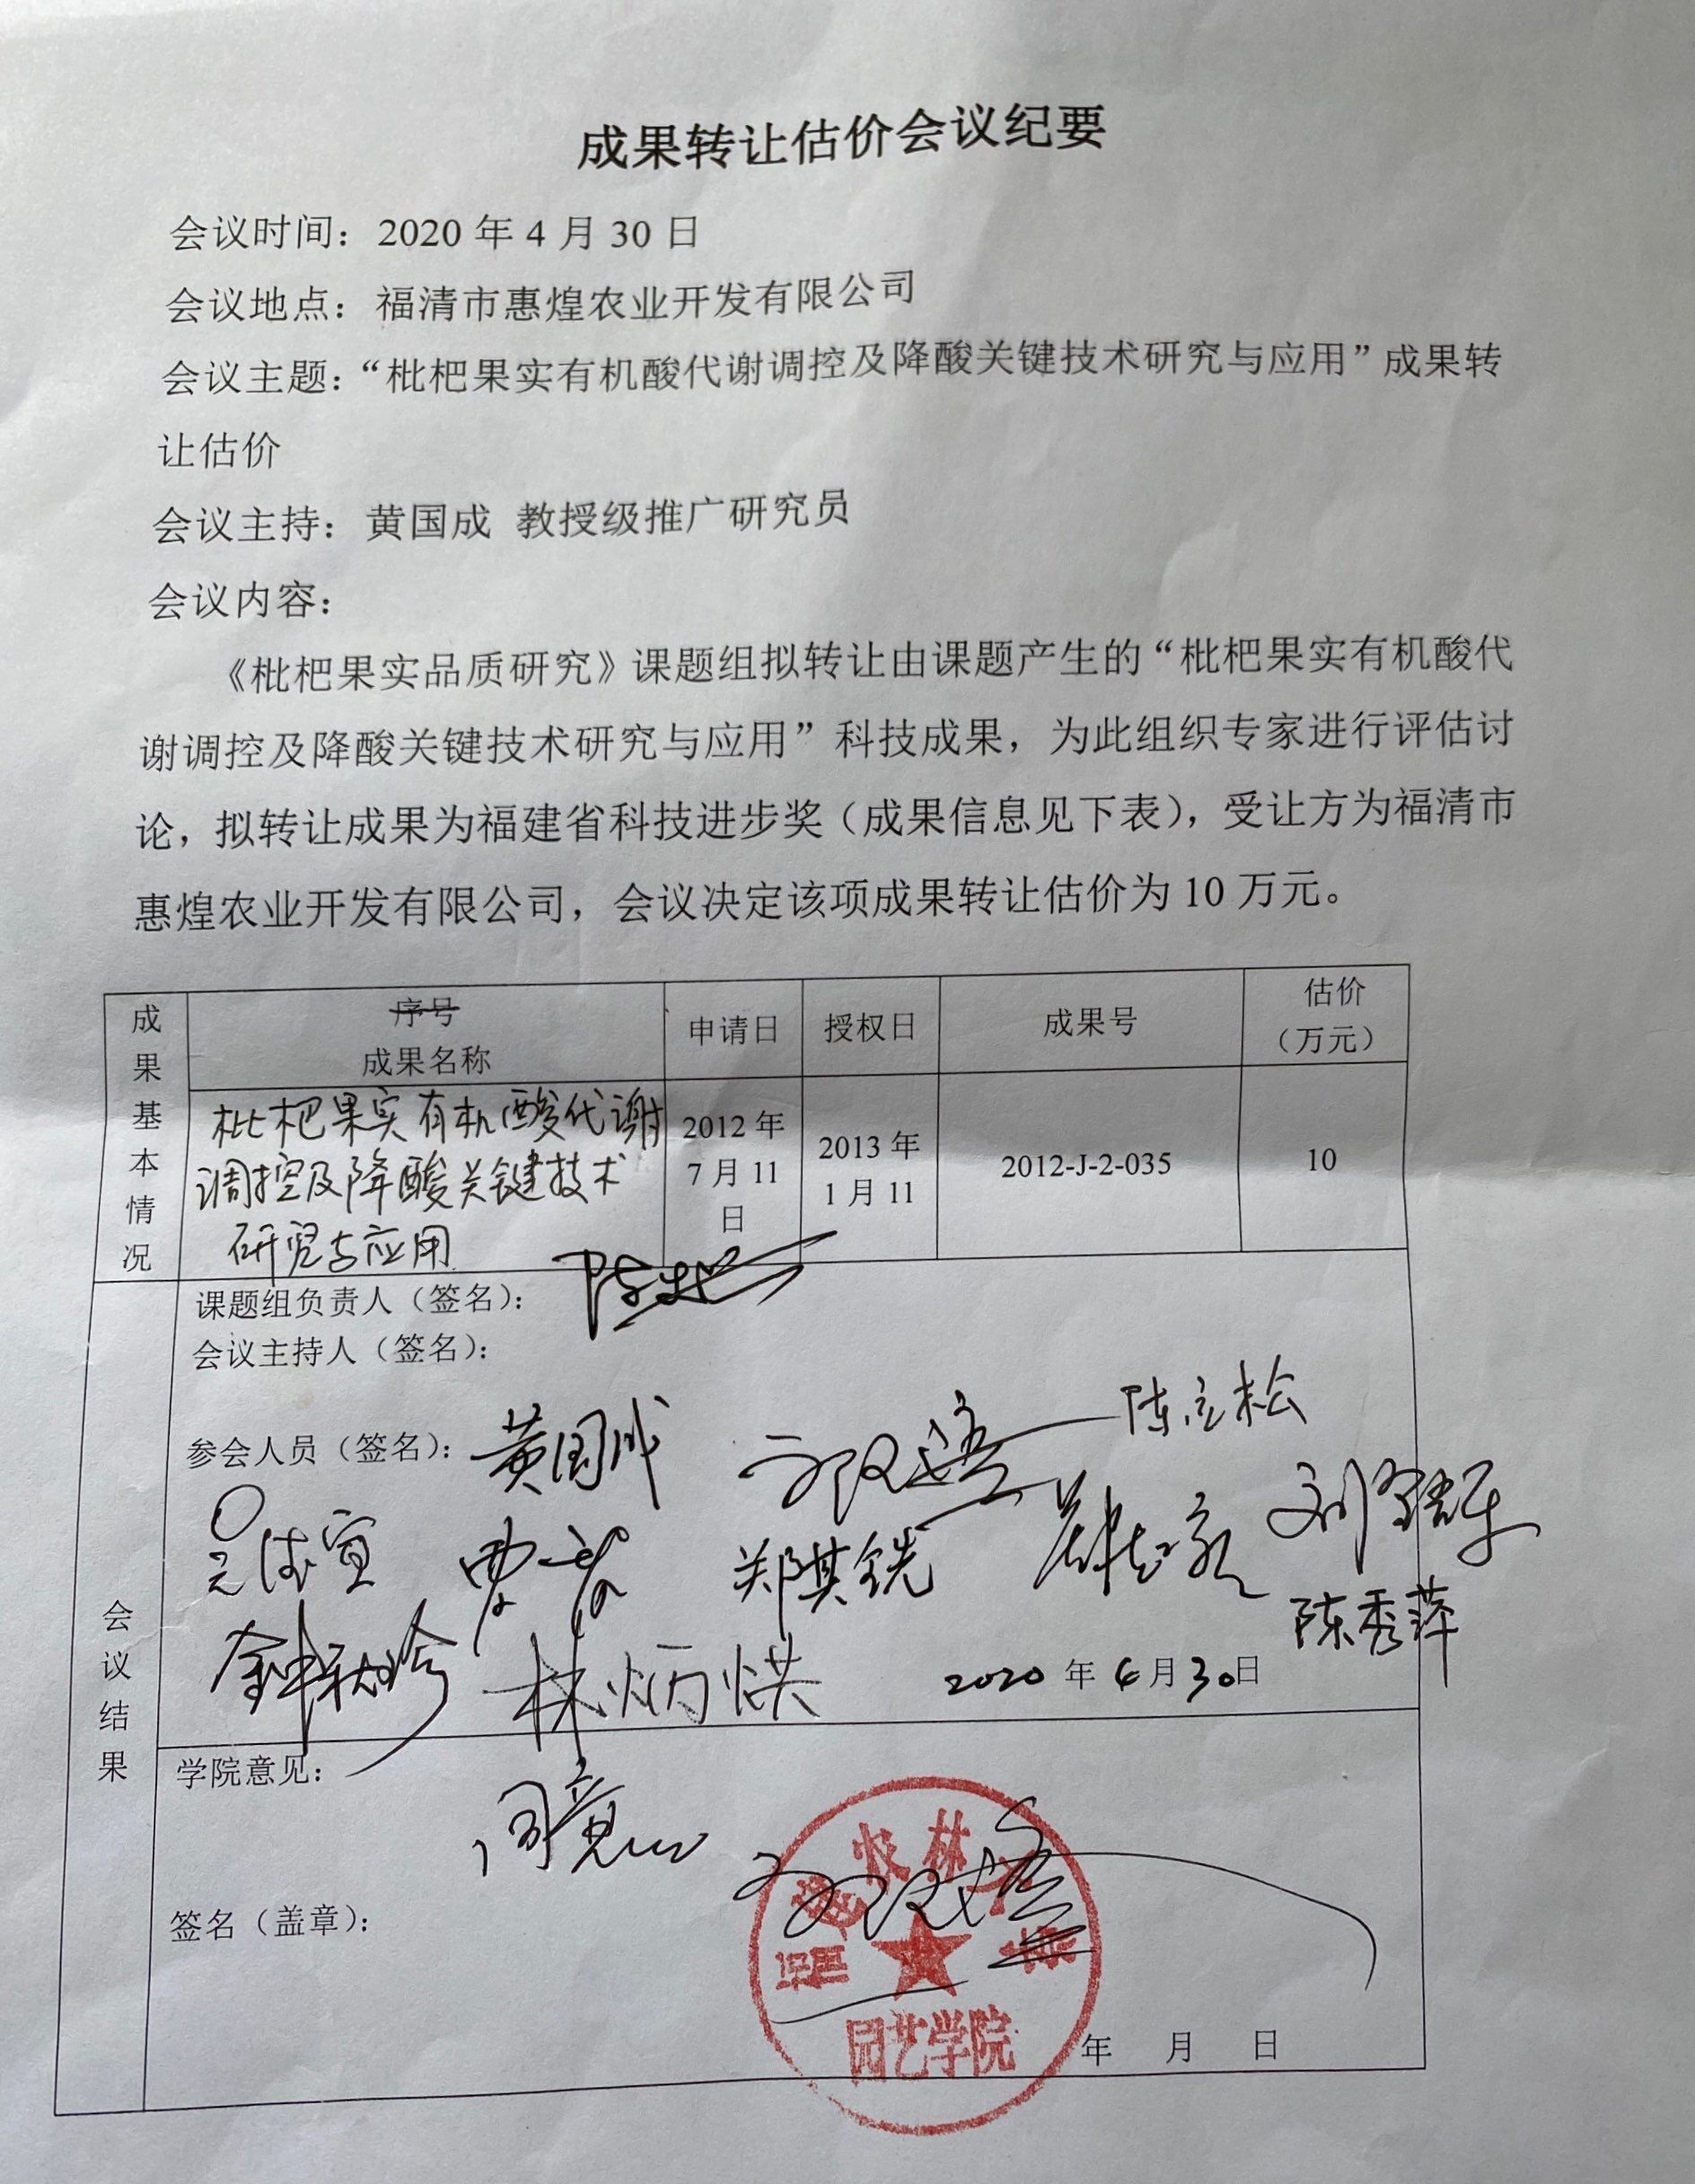 成果转让估价会议纪要
会议时间：2020 年 4 月 30 日
会议地点：福清市惠煌农业开发有限公司
会议主题：“枇杷果实有机酸代谢调控及降酸关键技术研究与应用”成果转
让估价
会议主持：黄国成 教授级推广研究员
会议内容：
《枇杷果实品质研究》课题组拟转让由课题产生的“枇杷果实有机酸代
谢调控及降酸关键技术研究与应用”科技成果，为此组织专家进行评估讨
论，拟转让成果为福建省科技进步奖（成果信息见下表），受让方为福清市
惠煌农业开发有限公司，会议决定该项成果转让估价为 10 万元。
成果基本情况
序号
成果名称
申请日
授权日
成果号
估价
（万元）
枇杷果实有机酸代谢
调控及降酸关键技术
研究与应用
2012 年
7 月 11
日
2013 年
1 月 11
2012-J-2-035
10
会议结果
课题组负责人（签名）：
会议主持人（签名）：
参会人员（签名）：黄国成
陈立松
郑其铣
钟秋珍
林炳烘
陈秀萍
2020 年 4 月 30 日
学院意见：
同意
签名（盖章）：
福建农林大学
园艺学院
年 月 日